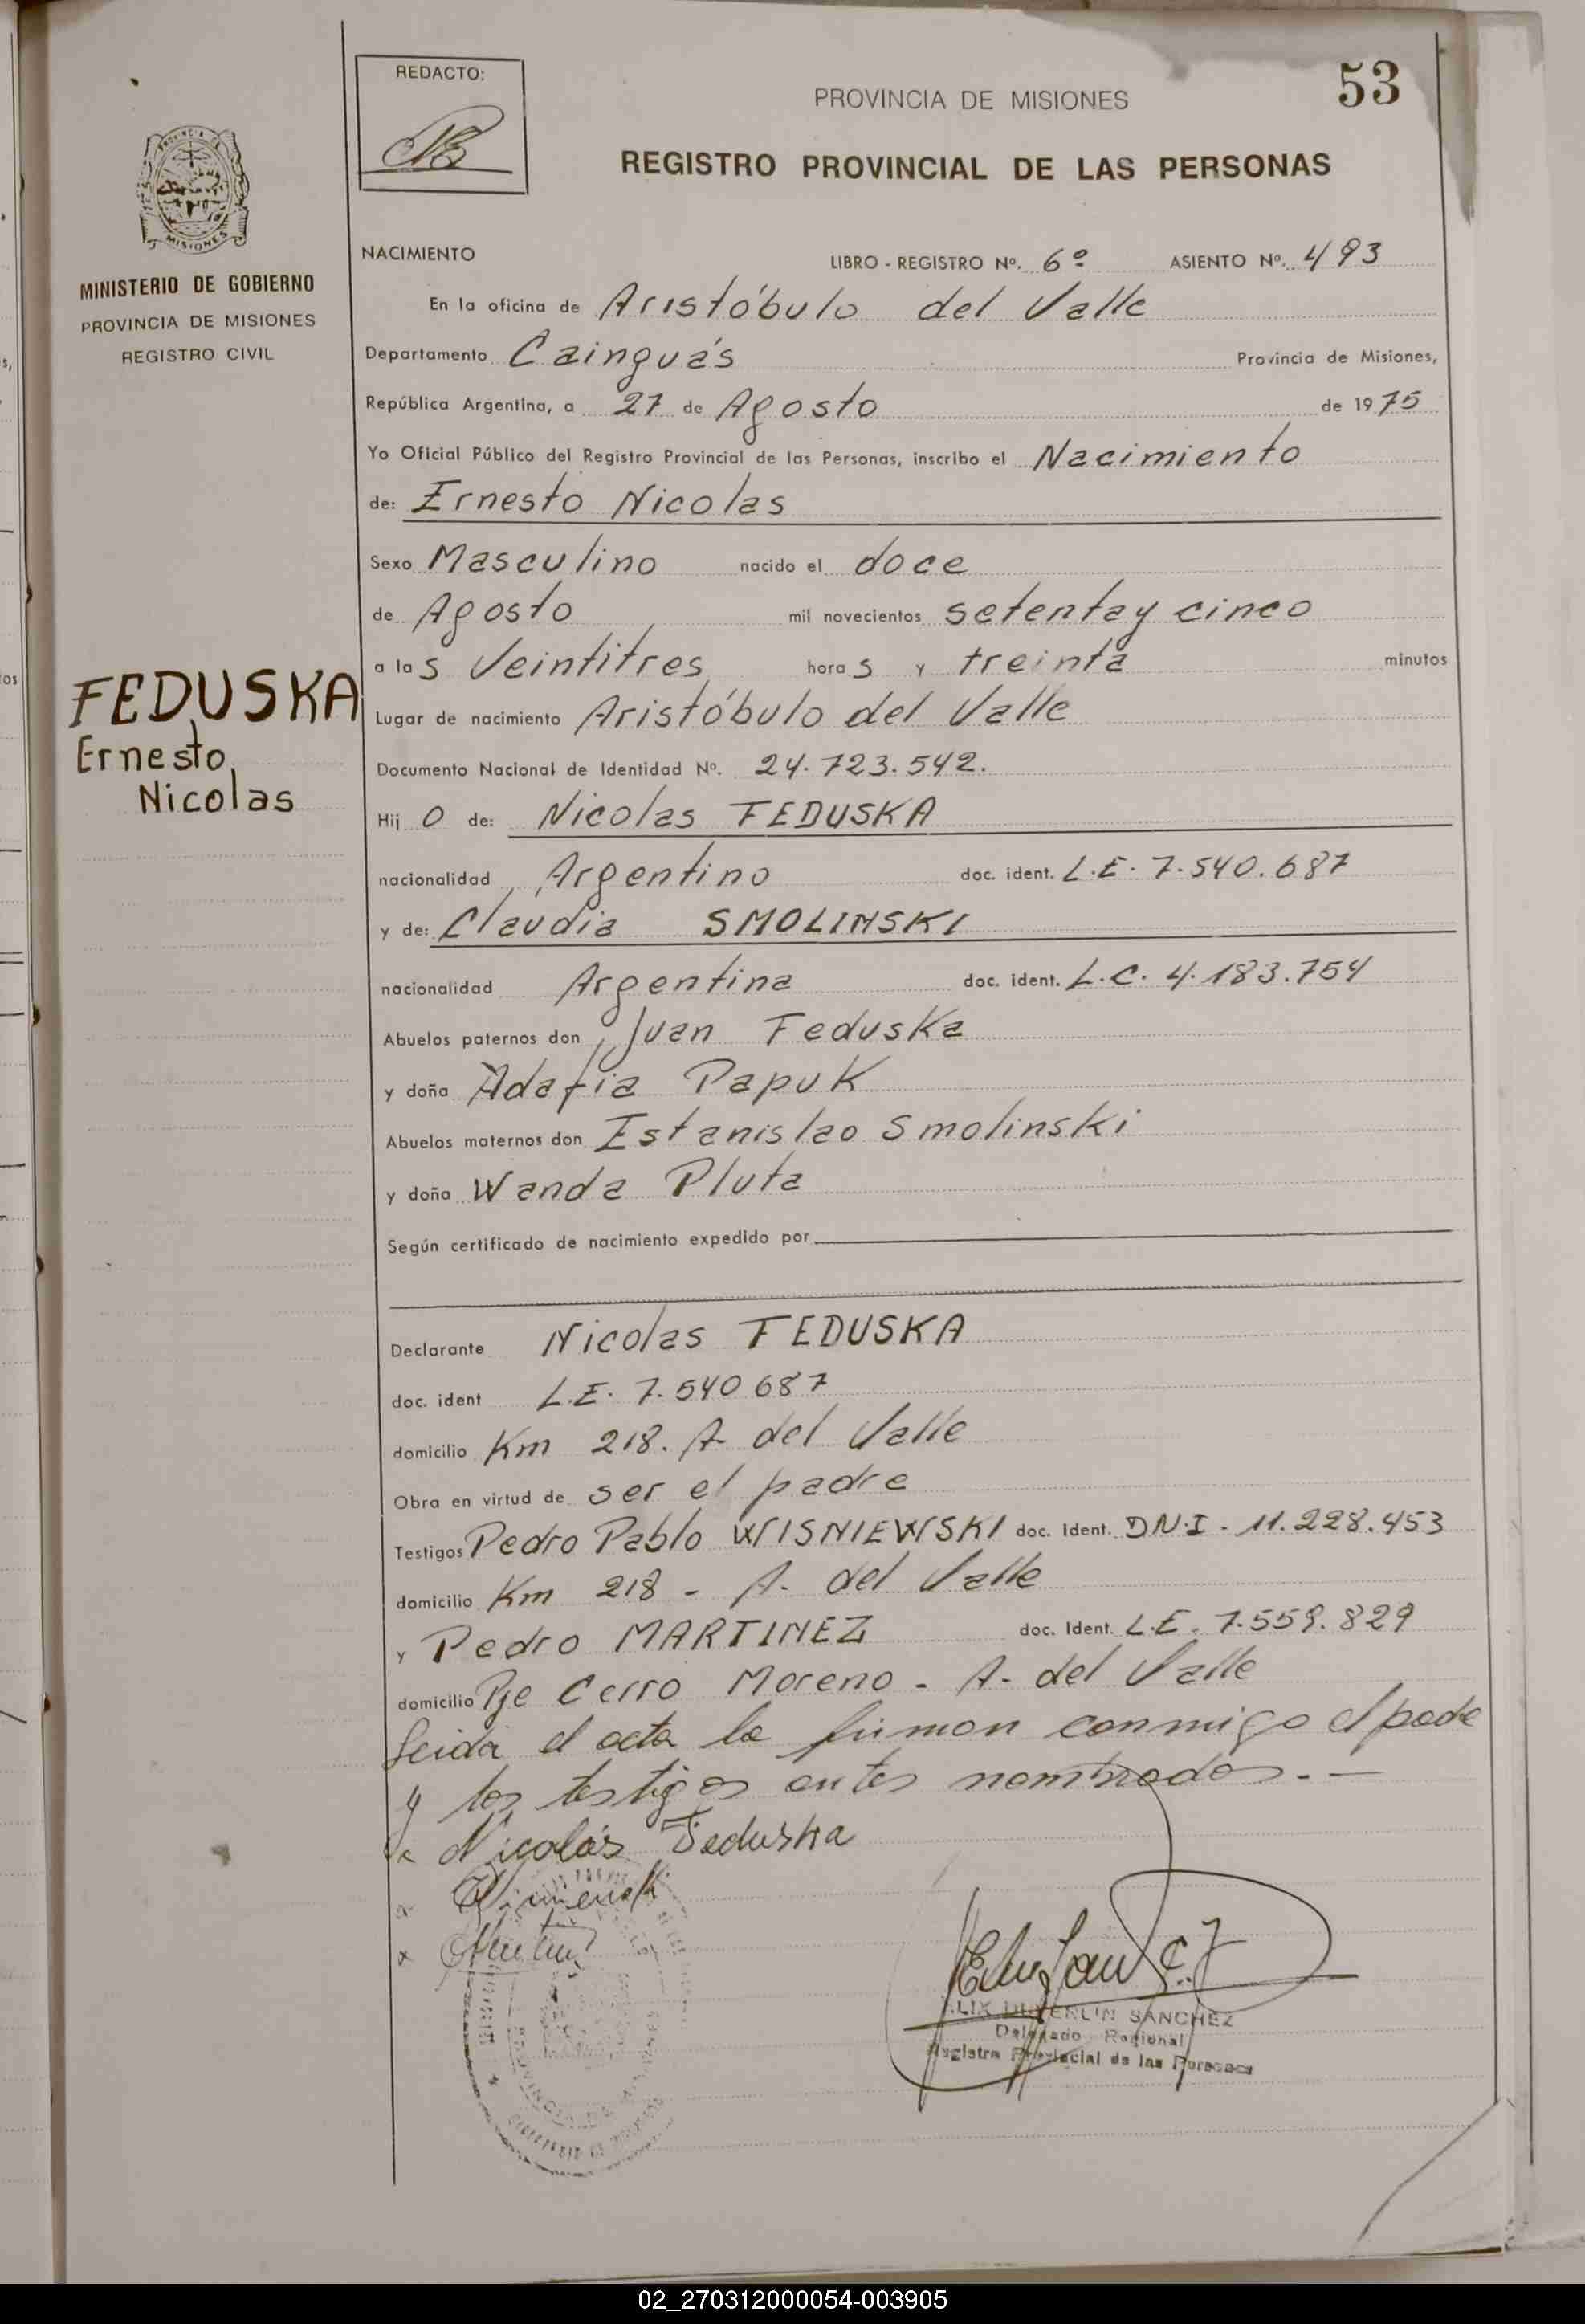 REDACTO:
PROVINCIA DE MISIONES
53
REGISTRO PROVINCIAL DE LAS PERSONAS
MISIONES
MINISTERIO DE GOBIERNO
PROVINCIA DE MISIONES
REGISTRO CIVIL
NACIMIENTO LIBRO - REGISTRO Nº. 6º ASIENTO Nº. 493
En la oficina de Aristóbulo del Valle
Departamento Cainguás Provincia de Misiones,
República Argentina, a 27 de Agosto de 1975
Yo Oficial Público del Registro Provincial de las Personas, inscribo el Nacimiento
de: Ernesto Nicolas
Sexo Masculino nacido el doce
de Agosto mil novecientos setenta y cinco
a las Veintitres horas y treinta minutos
FEDUSKA
Ernesto
Nicolas
Lugar de nacimiento Aristóbulo del Valle
Documento Nacional de Identidad Nº. 24.723.542.
Hijo de: Nicolas FEDUSKA
nacionalidad Argentino doc. ident. L.E. 7.540.687
y de: Claudia SMOLINSKI
nacionalidad Argentina doc. ident. L.C. 4.183.754
Abuelos paternos don Juan Feduska
y doña Adafia Papuk
Abuelos maternos don Estanislao Smolinski
y doña Wanda Pluta
Según certificado de nacimiento expedido por
Declarante Nicolas FEDUSKA
doc. ident L.E. 7.540687
domicilio Km 218. A del Valle
Obra en virtud de ser el padre
Testigos Pedro Pablo WISNIEWSKI doc. ident. DN.I - 11.228.453
domicilio Km 218 - A. del Valle
y Pedro MARTINEZ doc. Ident. L.E. 7.559.829
domicilio Pje Cerro Moreno - A. del Valle
Leida el acta la firman conmigo el padre
y los testigos antes nombrados.-
Nicolás Feduska
SANCHEZ
Delegado Regional
Registro Provincial de las Personas
02_270312000054-003905